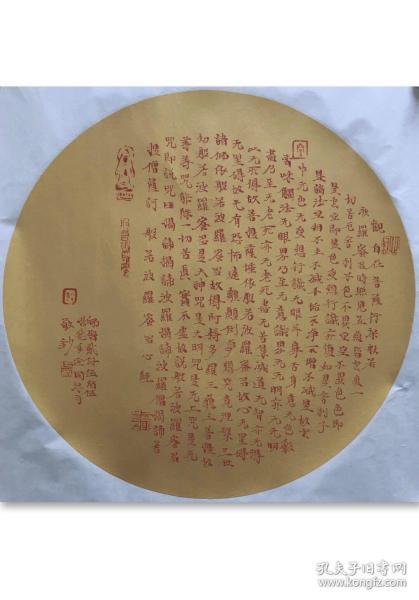 觀自在菩薩行深般若
波羅蜜多時照見五蘊皆空度一
切苦厄舍利子色不異空空不異色色即
是空空即是色受想行識亦復如是舍利子
是諸法空相不生不滅不垢不淨不增不減是故空
中无色无受想行識无眼耳鼻舌身意无色聲
香味觸法无眼界乃至无意識界无无明亦无无明
盡乃至无老死亦无老死盡无苦集滅道无智亦无得
以无所得故菩提薩埵依般若波羅蜜多故心无罣礙
无罣礙故无有恐怖遠離顛倒夢想究竟涅槃三世
諸佛依般若波羅蜜多故得阿耨多羅三藐三菩提故
知般若波羅蜜多是大神咒是大明咒是无上咒是无
等等咒能除一切苦真實不虛故說般若波羅蜜多
咒即說咒曰揭諦揭諦波羅揭諦波羅僧揭諦菩
提僧薩訶 般若波羅蜜多心經
敬抄
孔夫子旧书网